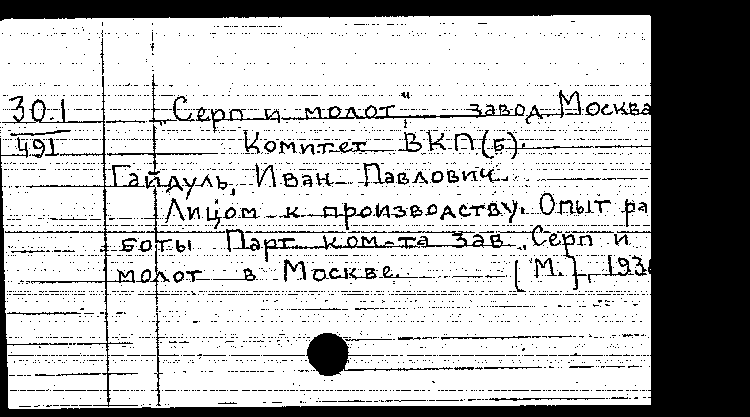 30.1 „Серп и молот“ завод. Москва
491 Комитет ВКП(б).
Гайдуль, Иван Павлович.
Лицом к производству. Опыт ра
боты Парт. ком-та зав. „Серп и
молот в Москве. [М.], 193